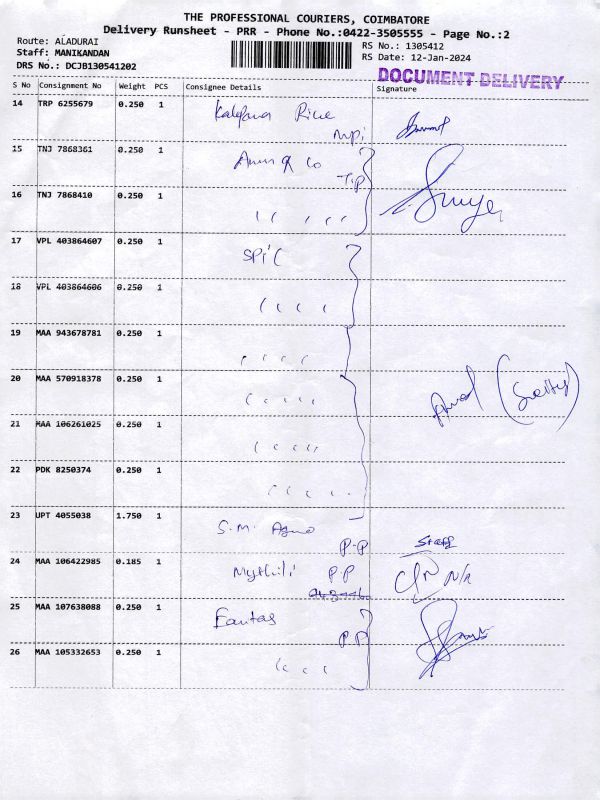 THE PROFESSIONAL COURIERS, COIMBATORE
Delivery Runsheet - PRR - Phone No.:0422-3505555 - Page No.:2
Route: ALADURAI
RS No.: 1305412
Staff: MANIKANDAN
RS Date: 12-Jan-2024
DRS No.: DCJB130541202
DOCUMENT DELIVERY
S No Consignment No Weight PCS Consignee Details Signature
14 TRP 6255679 0.250 1
15 TNJ 7868361 0.250 1
16 TNJ 7868410 0.250 1
17 VPL 403864607 0.250 1 SPIC
18 VPL 403864606 0.250 1
19 MAA 943678781 0.250 1
20 MAA 570918378 0.250 1
21 MAA 106261025 0.250 1
22 PDK 8250374 0.250 1
23 UPT 4055038 1.750 1 S.M. Agro
P.P Staff
24 MAA 106422985 0.185 1 Mythili P.P N/R
25 MAA 107638088 0.250 1 Fantas
P P
26 MAA 105332653 0.250 1